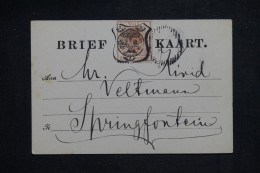 BRIEF KAART.
Aan Mr. David
Veltmann
Te Springfontein